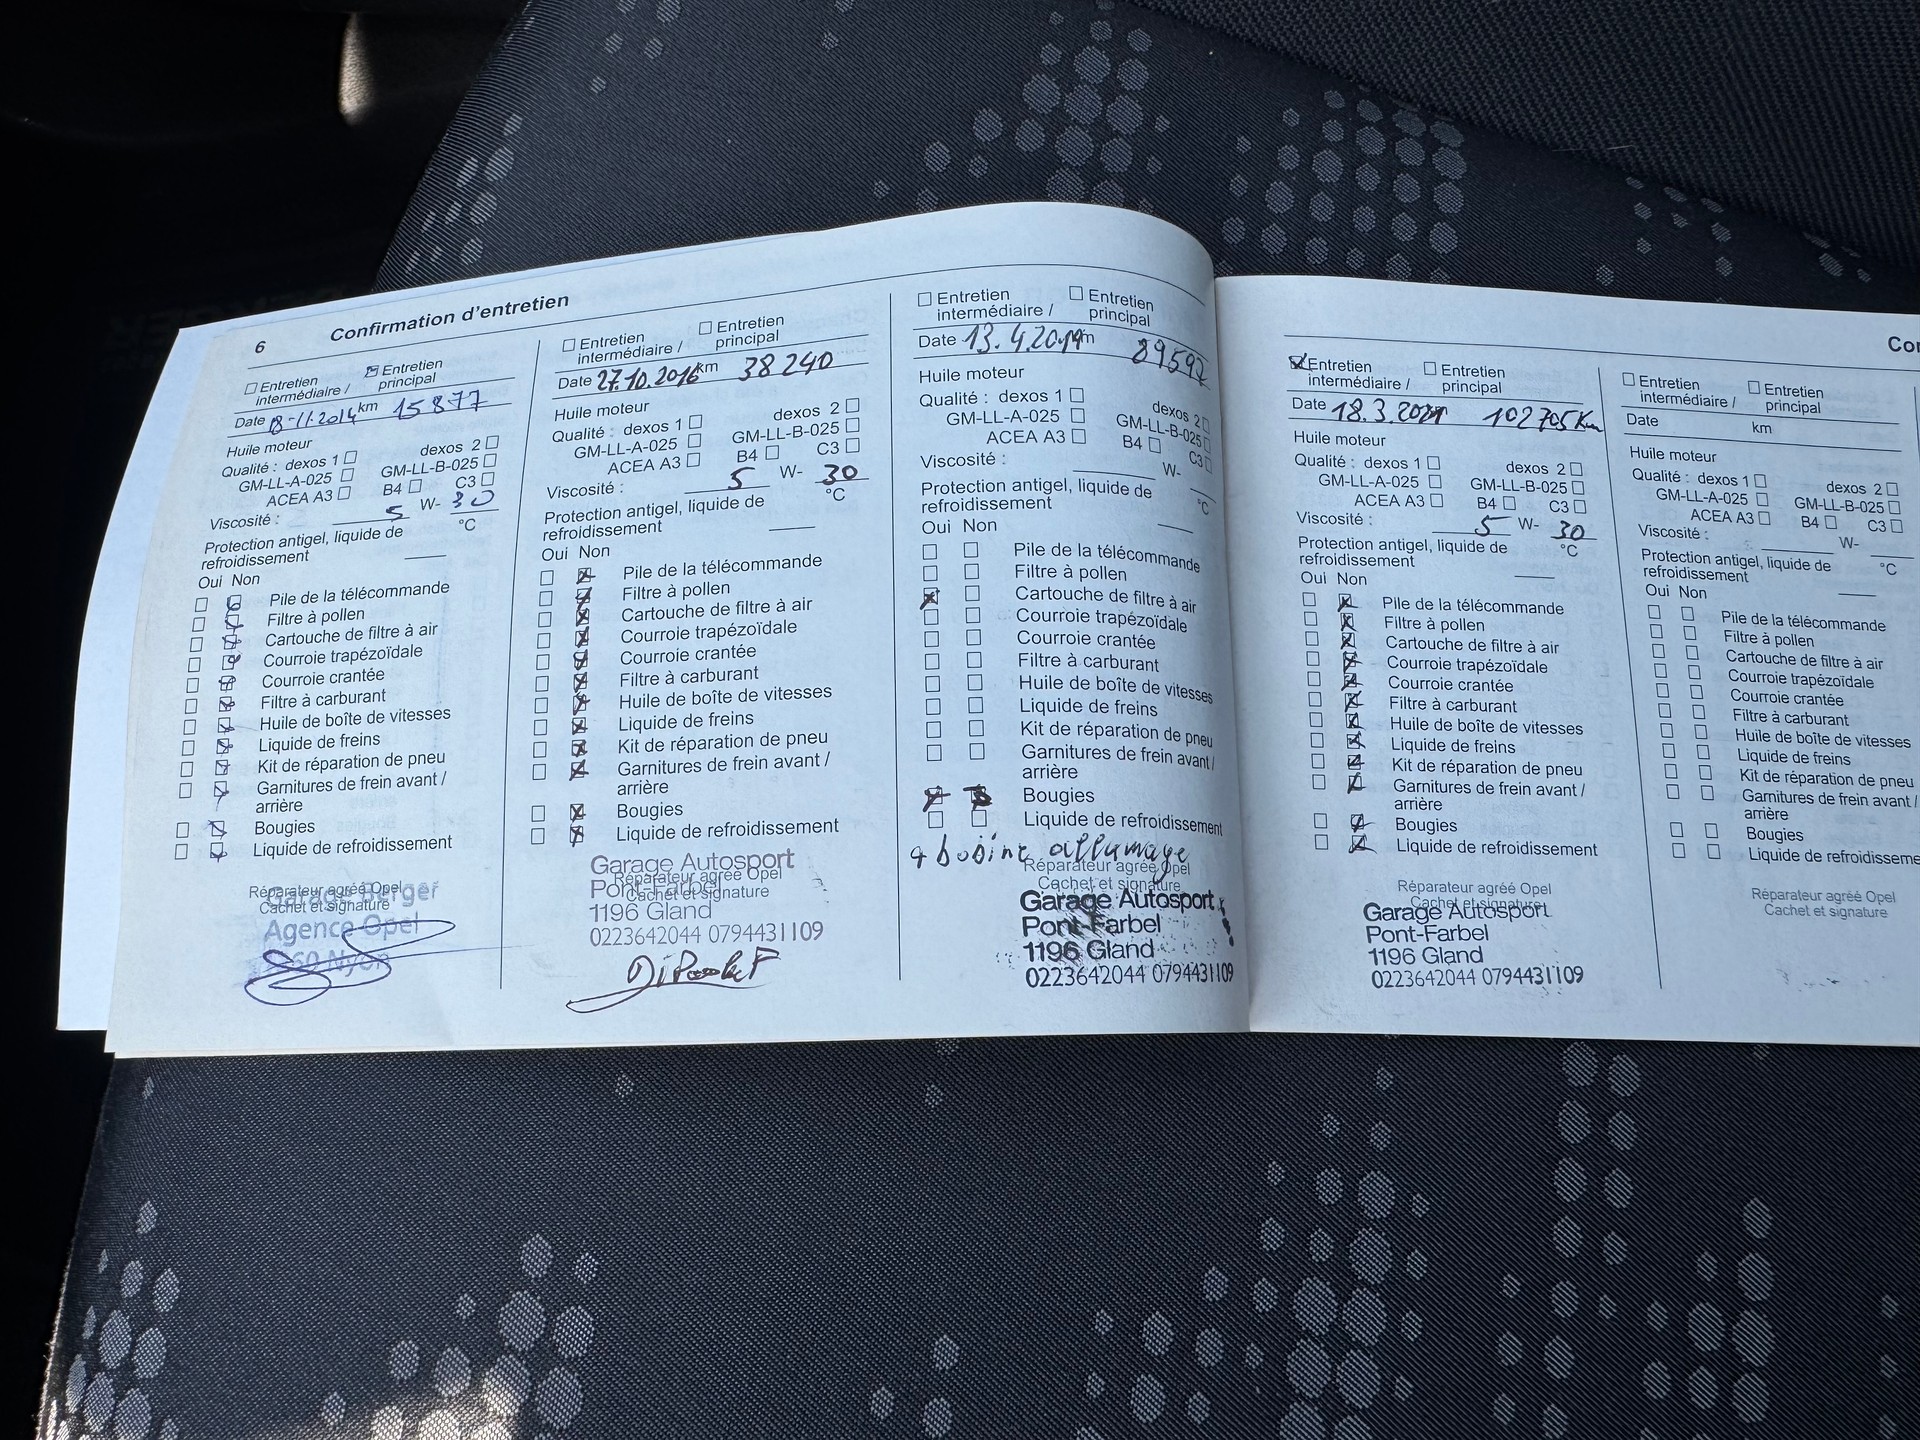 6 Confirmation d'entretien
Entretien intermédiaire /
Entretien principal
Date 18-11.2014 km 15877
Huile moteur
Qualité : dexos 1 dexos 2
GM-LL-A-025 GM-LL-B-025
ACEA A3 B4 C3
Viscosité : 5 W- 30
Protection antigel, liquide de
refroidissement °C
Oui Non
Pile de la télécommande
Filtre à pollen
Cartouche de filtre à air
Courroie trapézoïdale
Courroie crantée
Filtre à carburant
Huile de boîte de vitesses
Liquide de freins
Kit de réparation de pneu
Garnitures de frein avant /
arrière
Bougies
Liquide de refroidissement
Réparateur agréé Opel
Cachet et signature
Garage Berger
Agence Opel
Nyon
Entretien intermédiaire /
Entretien principal
Date 27.10.2016 km 38240
Huile moteur
Qualité : dexos 1 dexos 2
GM-LL-A-025 GM-LL-B-025
ACEA A3 B4 C3
Viscosité : 5 W- 30
Protection antigel, liquide de
refroidissement °C
Oui Non
Pile de la télécommande
Filtre à pollen
Cartouche de filtre à air
Courroie trapézoïdale
Courroie crantée
Filtre à carburant
Huile de boîte de vitesses
Liquide de freins
Kit de réparation de pneu
Garnitures de frein avant /
arrière
Bougies
Liquide de refroidissement
Réparateur agréé Opel
Cachet et signature
Garage Autosport
Pont-Farbel
1196 Gland
0223642044 0794431109
Entretien intermédiaire /
Entretien principal
Date 13.4.2019 km 89592
Huile moteur
Qualité : dexos 1 dexos 2
GM-LL-A-025 GM-LL-B-025
ACEA A3 B4 C3
Viscosité : W-
Protection antigel, liquide de
refroidissement °C
Oui Non
Pile de la télécommande
Filtre à pollen
Cartouche de filtre à air
Courroie trapézoïdale
Courroie crantée
Filtre à carburant
Huile de boîte de vitesses
Liquide de freins
Kit de réparation de pneu
Garnitures de frein avant /
arrière
Bougies
Liquide de refroidissement
+ bobine allumage
Réparateur agréé Opel
Cachet et signature
Garage Autosport
Pont-Farbel
1196 Gland
0223642044 0794431109
Entretien intermédiaire /
Entretien principal
Date 18.3.2021 102705 Km
Huile moteur
Qualité : dexos 1 dexos 2
GM-LL-A-025 GM-LL-B-025
ACEA A3 B4 C3
Viscosité : 5 W- 30
Protection antigel, liquide de
refroidissement °C
Oui Non
Pile de la télécommande
Filtre à pollen
Cartouche de filtre à air
Courroie trapézoïdale
Courroie crantée
Filtre à carburant
Huile de boîte de vitesses
Liquide de freins
Kit de réparation de pneu
Garnitures de frein avant /
arrière
Bougies
Liquide de refroidissement
Réparateur agréé Opel
Cachet et signature
Garage Autosport
Pont-Farbel
1196 Gland
0223642044 0794431109
Con
Entretien intermédiaire /
Entretien principal
Date km
Huile moteur
Qualité : dexos 1 dexos 2
GM-LL-A-025 GM-LL-B-025
ACEA A3 B4 C3
Viscosité : W-
Protection antigel, liquide de
refroidissement °C
Oui Non
Pile de la télécommande
Filtre à pollen
Cartouche de filtre à air
Courroie trapézoïdale
Courroie crantée
Filtre à carburant
Huile de boîte de vitesses
Liquide de freins
Kit de réparation de pneu
Garnitures de frein avant /
arrière
Bougies
Liquide de refroidisseme
Réparateur agréé Opel
Cachet et signature